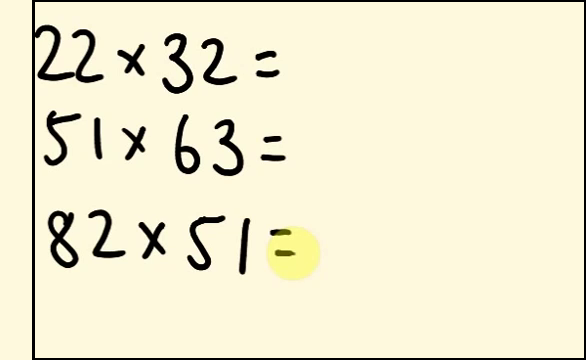 22×32=
51×63=
82×51=